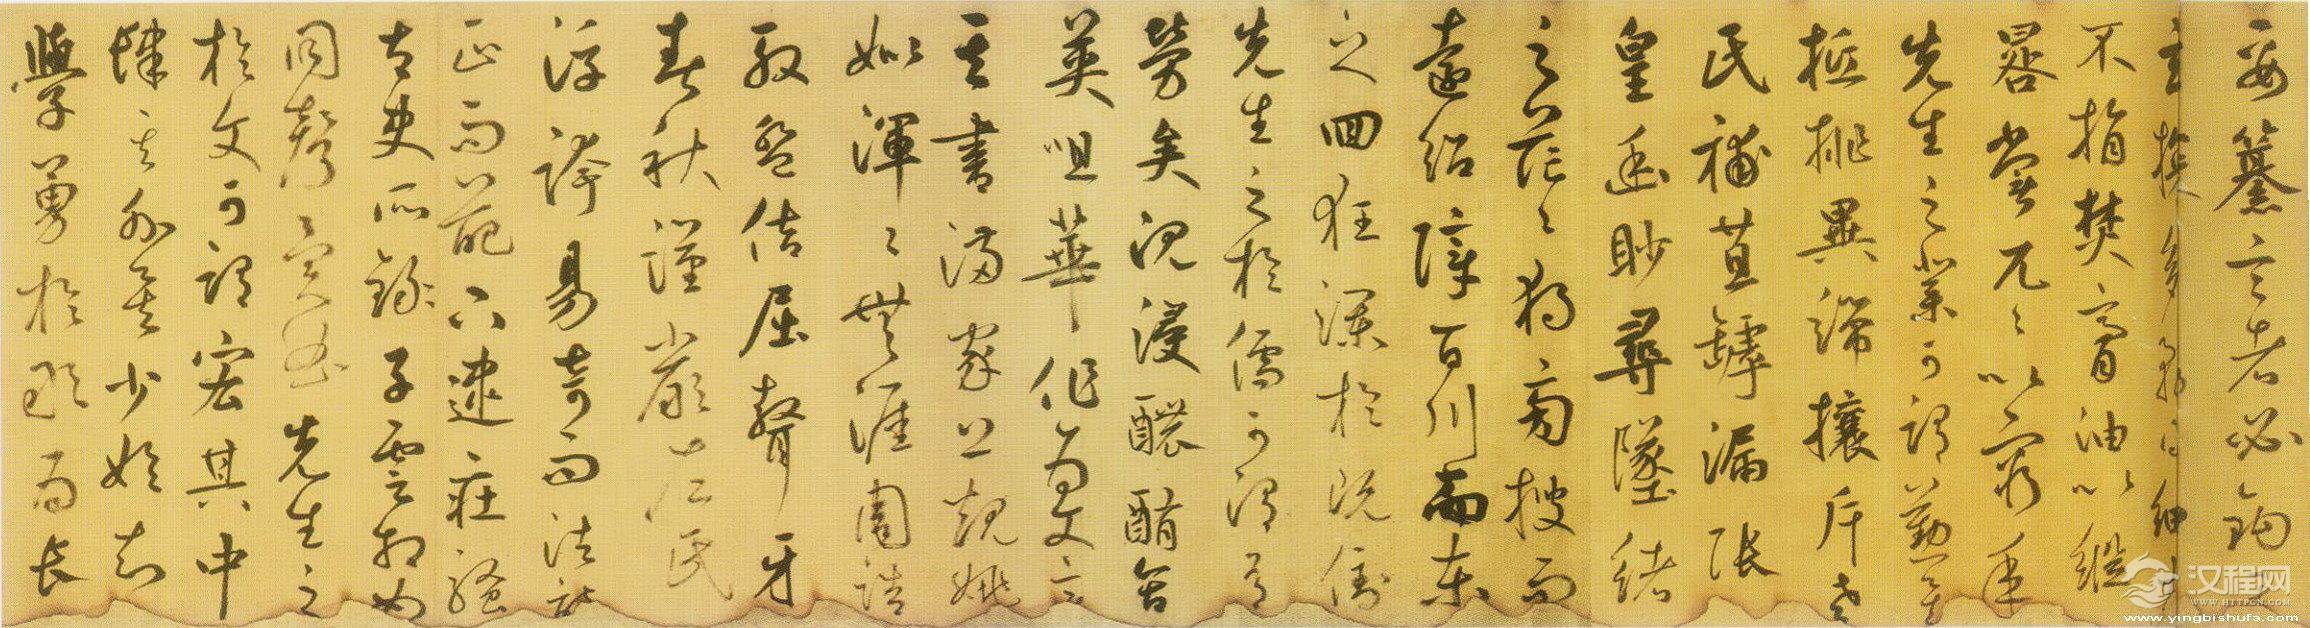 要纂言者必鉤
玄貪多務得細大
不捐焚膏油以繼
晷常兀〻以窮年
先生之業可謂勤矣
抵排異端攘斥老
氏補苴罅漏張
皇幽眇尋墜緒
之茫〻獨旁搜而
遠紹障百川而東
之回狂瀾於既倒
先生之於儒可謂有
勞矣沈浸醲含
英咀華作為文
其書滿家上規姚
姒渾〻無涯周誥
殷盤佶屈聱牙
春秋謹嚴左氏
浮誇易奇而法詩
正而葩下逮莊騷
太史所錄子雲相如
同聲異曲先生之
於文可謂宏其中
肆其外矣少始知
學勇於敢為長
汉程网
WWW.HTTPCN.COM
www.yingbishufa.com